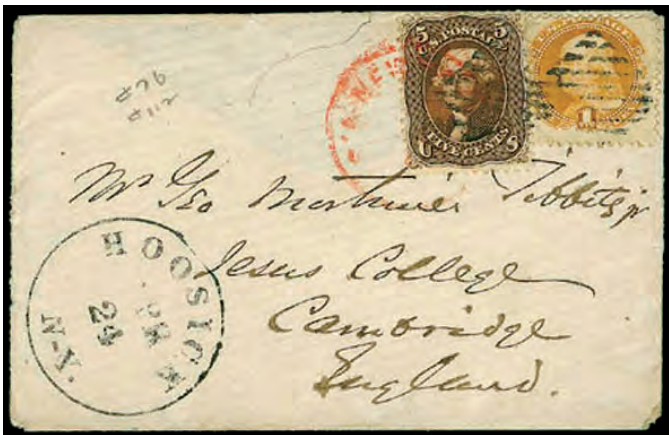 5 U.S. POSTAGE 5
FIVE CENTS
U S
1
#76
#112
Mr Geo Mortimer Tibbits Jr
Jesus College
Cambridge
England.
HOOSICK
24
N-Y.